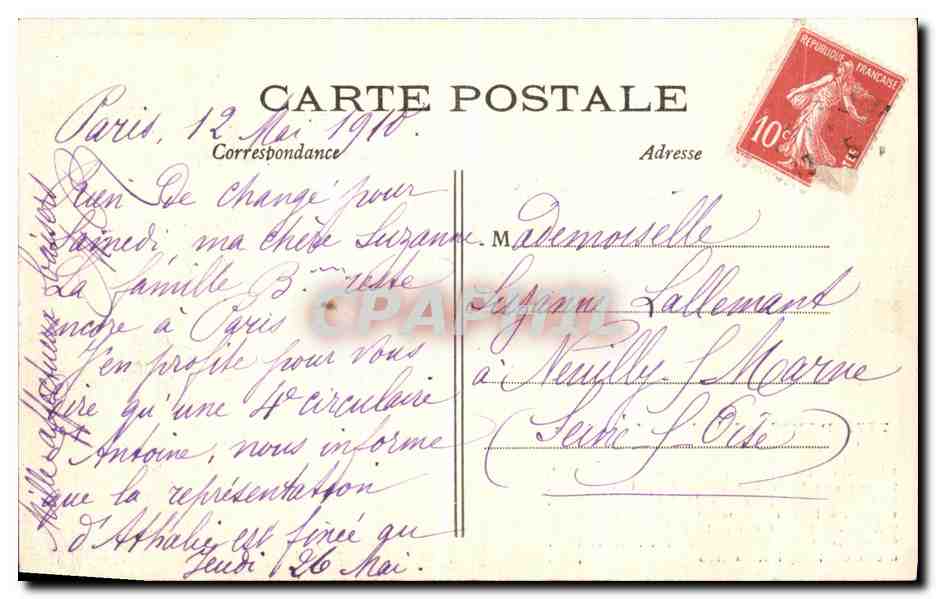 CARTE POSTALE
Correspondance
Adresse
REPUBLIQUE FRANÇAISE
10c
Paris, 12 Mai 1910.
Rien de changé pour
Samedi ma chère Suzanne.
La famille B... reste
encore à Paris
J'en profite pour vous
dire qu'une 4e circulaire
Antoine, nous informe
que la représentation
d'Athalie est fixée au
Jeudi 26 Mai.
Mille affectueux baisers
Mademoiselle
Suzanne Lallemant
à Neuilly s/ Marne
(Seine & Oise)
CPAPHIL